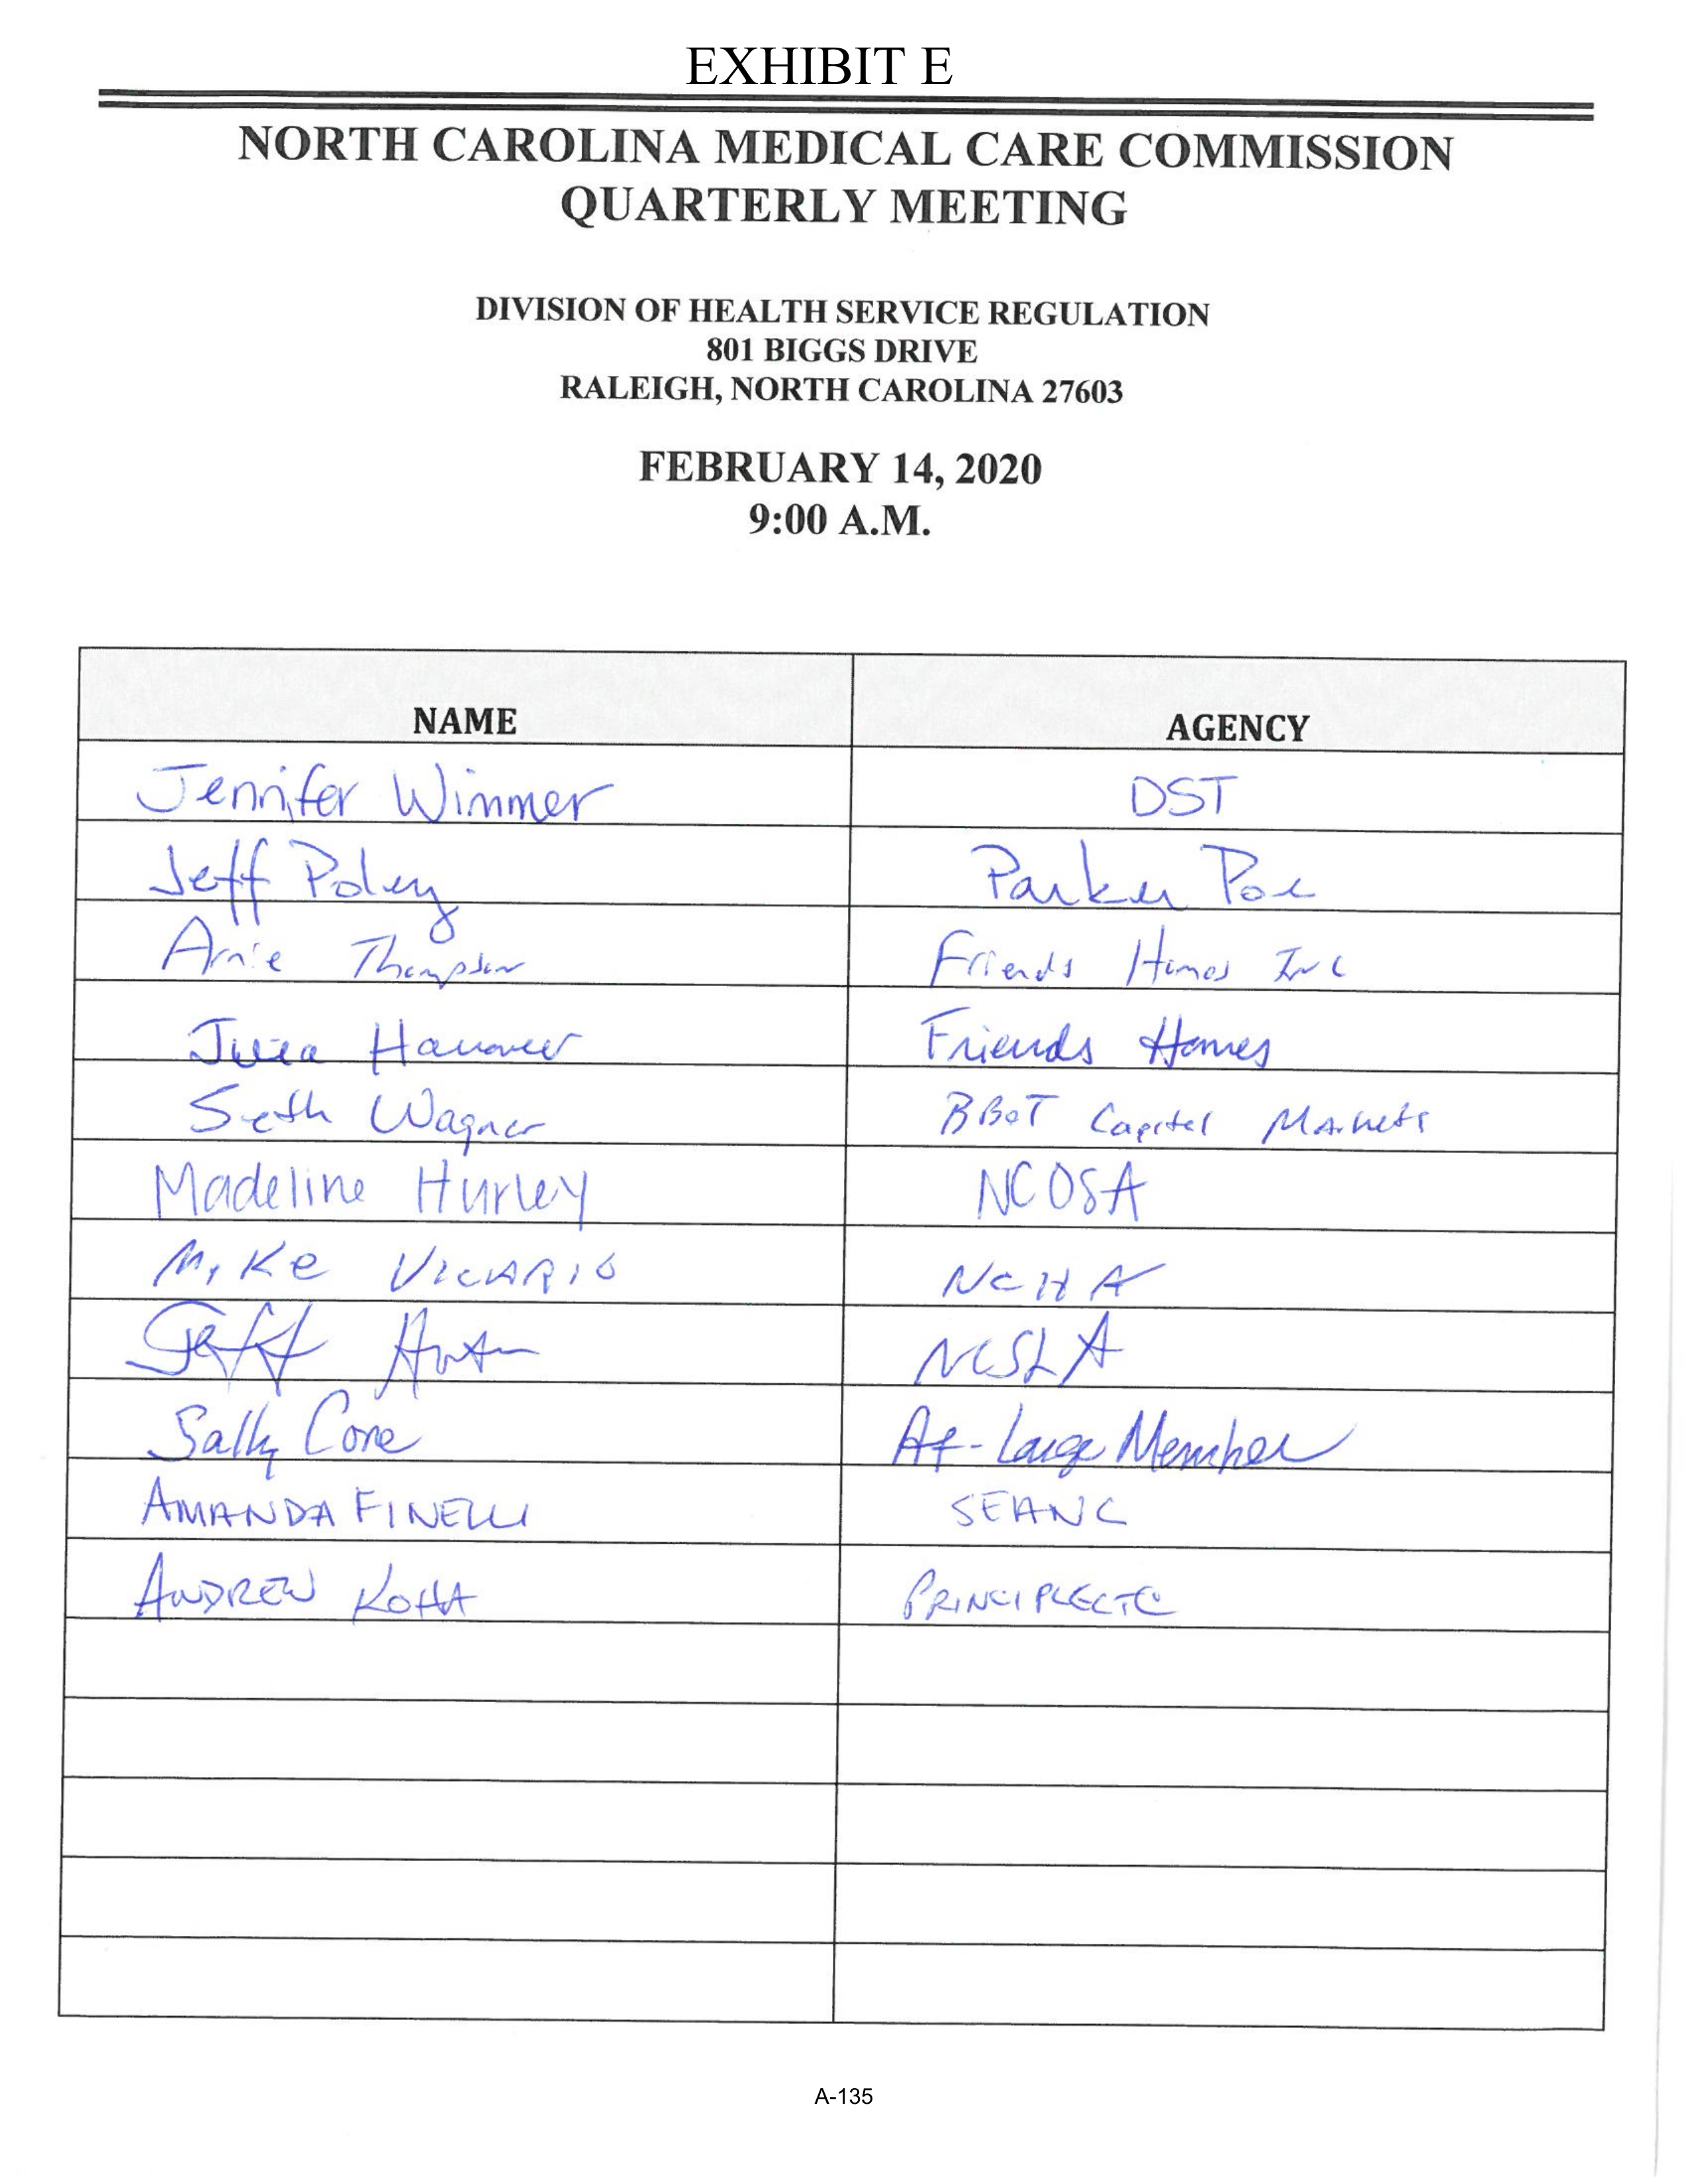 EXHIBIT E
NORTH CAROLINA MEDICAL CARE COMMISSION
QUARTERLY MEETING
DIVISION OF HEALTH SERVICE REGULATION
801 BIGGS DRIVE
RALEIGH, NORTH CAROLINA 27603
FEBRUARY 14, 2020
9:00 A.M.
NAME AGENCY
Jennifer Wimmer DST
Jeff Poley Parker Poe
Arnie Thompson Friends Homes Inc
Julia Hanover Friends Homes
Seth Wagner BB&T Capital Markets
Madeline Hurley NCOSA
Mike Vicario NCHA
Jeff NCSLA
Sally Cone At-Large Member
AMANDA FINELLI SEANC
ANDREW KOHA
A-135